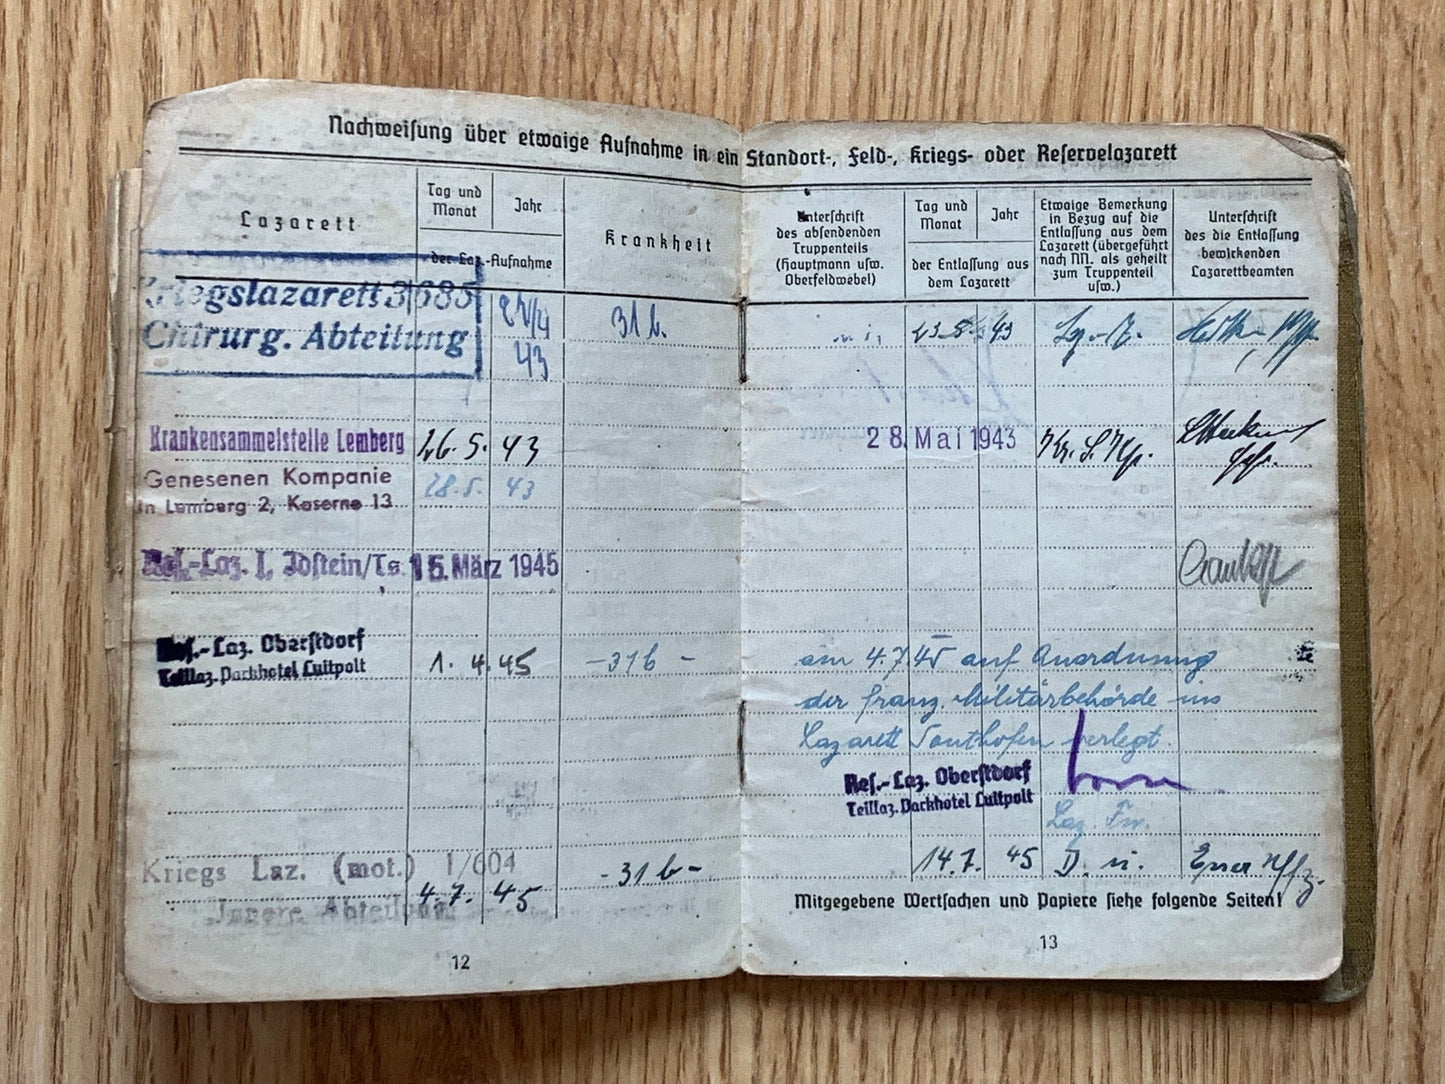 Nachweisung über etwaige Aufnahme in ein Standort-, Feld-, Kriegs- oder Reservelazarett
Lazarett
Tag und Monat
Jahr
der Laz.-Aufnahme
Krankheit
Kriegslazarett 3/685
Chirurg. Abteilung
43
31 b.
Krankensammelstelle Lemberg
26. 5. 43
Genesenen Kompanie
28. 5. 43
in Lemberg 2, Kaserne 13
Res.-Laz. I, Idstein/Ts. 15. März 1945
Res.-Laz. Oberstdorf
Teillaz. Parkhotel Luitpolt
1. 4. 45
- 31 b -
Kriegs Laz. (mot.) 1/604
Innere Abteilung
4. 7. 45
- 31 b -
12
Unterschrift
des absendenden
Truppenteils
(Hauptmann usw.
Oberfeldwebel)
Tag und
Monat
Jahr
der Entlassung aus
dem Lazarett
Etwaige Bemerkung
in Bezug auf die
Entlassung aus dem
Lazarett (übergeführt
nach NN. als geheilt
zum Truppenteil
usw.)
Unterschrift
des die Entlassung
bewirkenden
Lazarettbeamten
43
28. Mai 1943
am 4.7.45 auf Anordnung
der franz. Militärbehörde ins
Lazarett Sonthofen verlegt.
Res.-Laz. Oberstdorf
Teillaz. Parkhotel Luitpolt
14. 7. 45
Mitgegebene Wertsachen und Papiere siehe folgende Seiten!
13